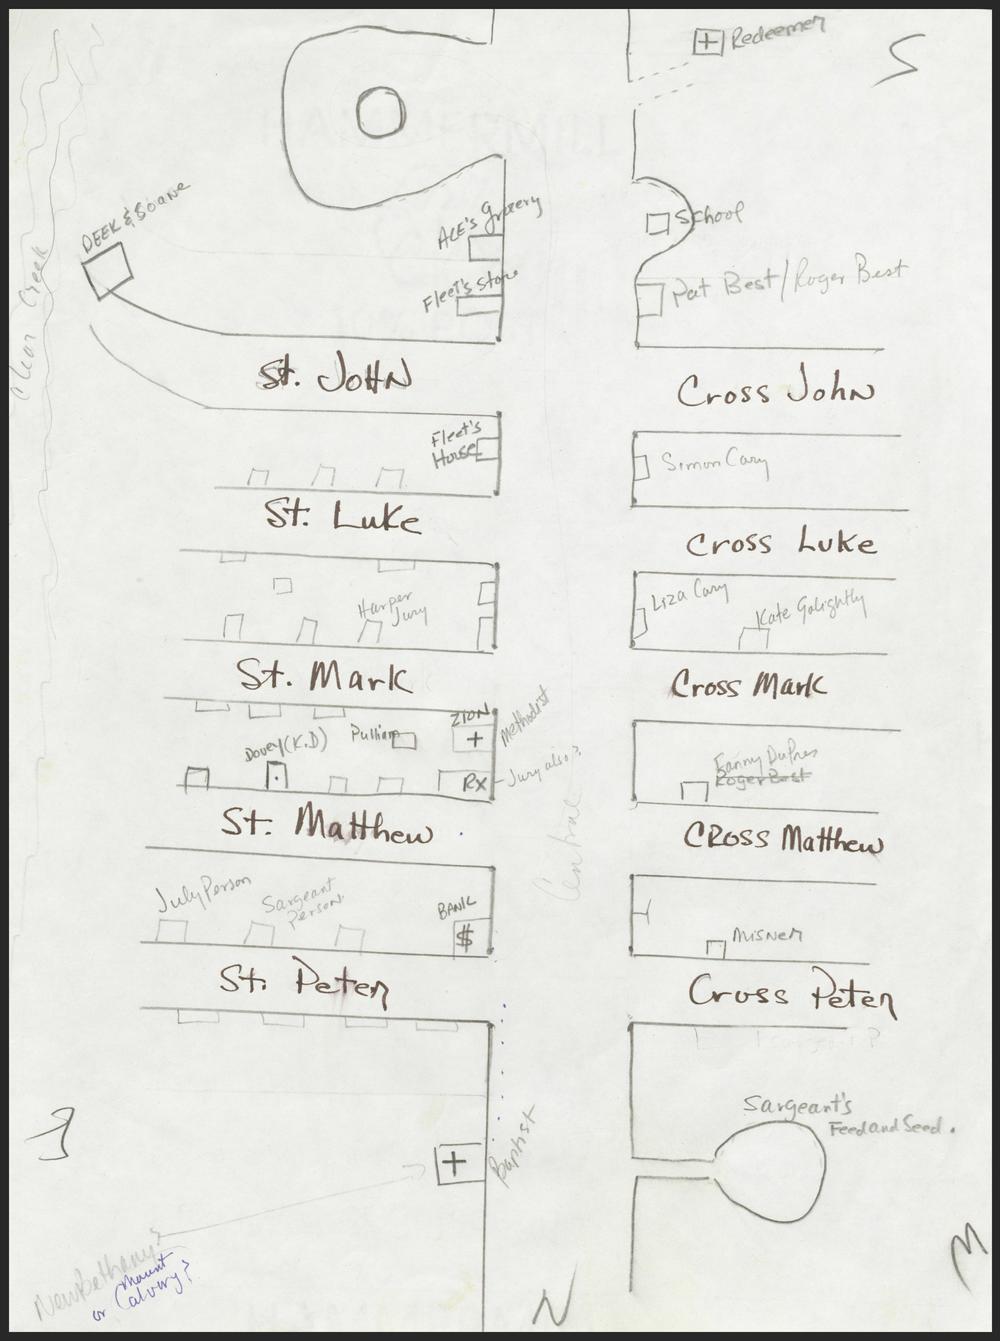 Redeemer
S
DEEK & SOANE
ACE's Grocery
School
Fleet's store
Pat Best/Roger Best
Clear Creek
St. JOHN
Cross John
Fleet's
House
Simon Cary
St. Luke
Cross Luke
Liza Cary
Kate Golightly
Harper
Jury
St. Mark
Cross Mark
ZION
Methodist
Dovey (K.D)
Pulliam
Fanny DuPres
Roger Best
RX
Jury also?
St. Matthew
CROSS Matthew
Central
July Person
Sargeant
Person
BANK
$
MISNER
St. Peter
Cross Peter
Sargeant P
Sargeant's
Feed and Seed.
Baptist
New Bethany?
or Mount
Calvary?
N